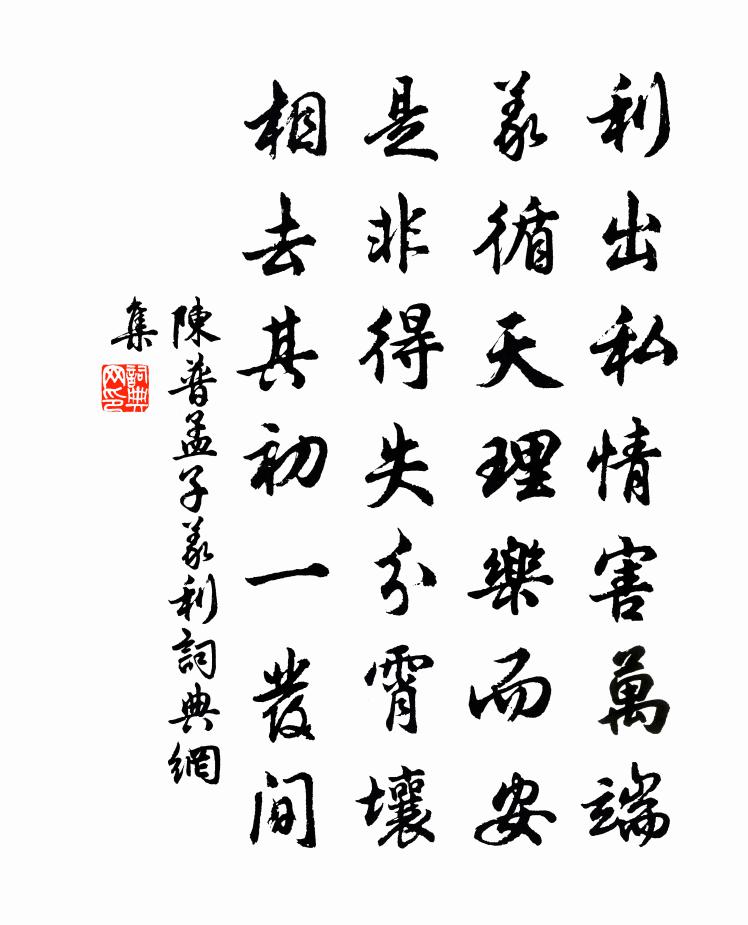 利出私情害萬端
義循天理樂而安
是非得失分霄壤
相去其初一發間
陳普孟子義利詞典網
集
詞典网印